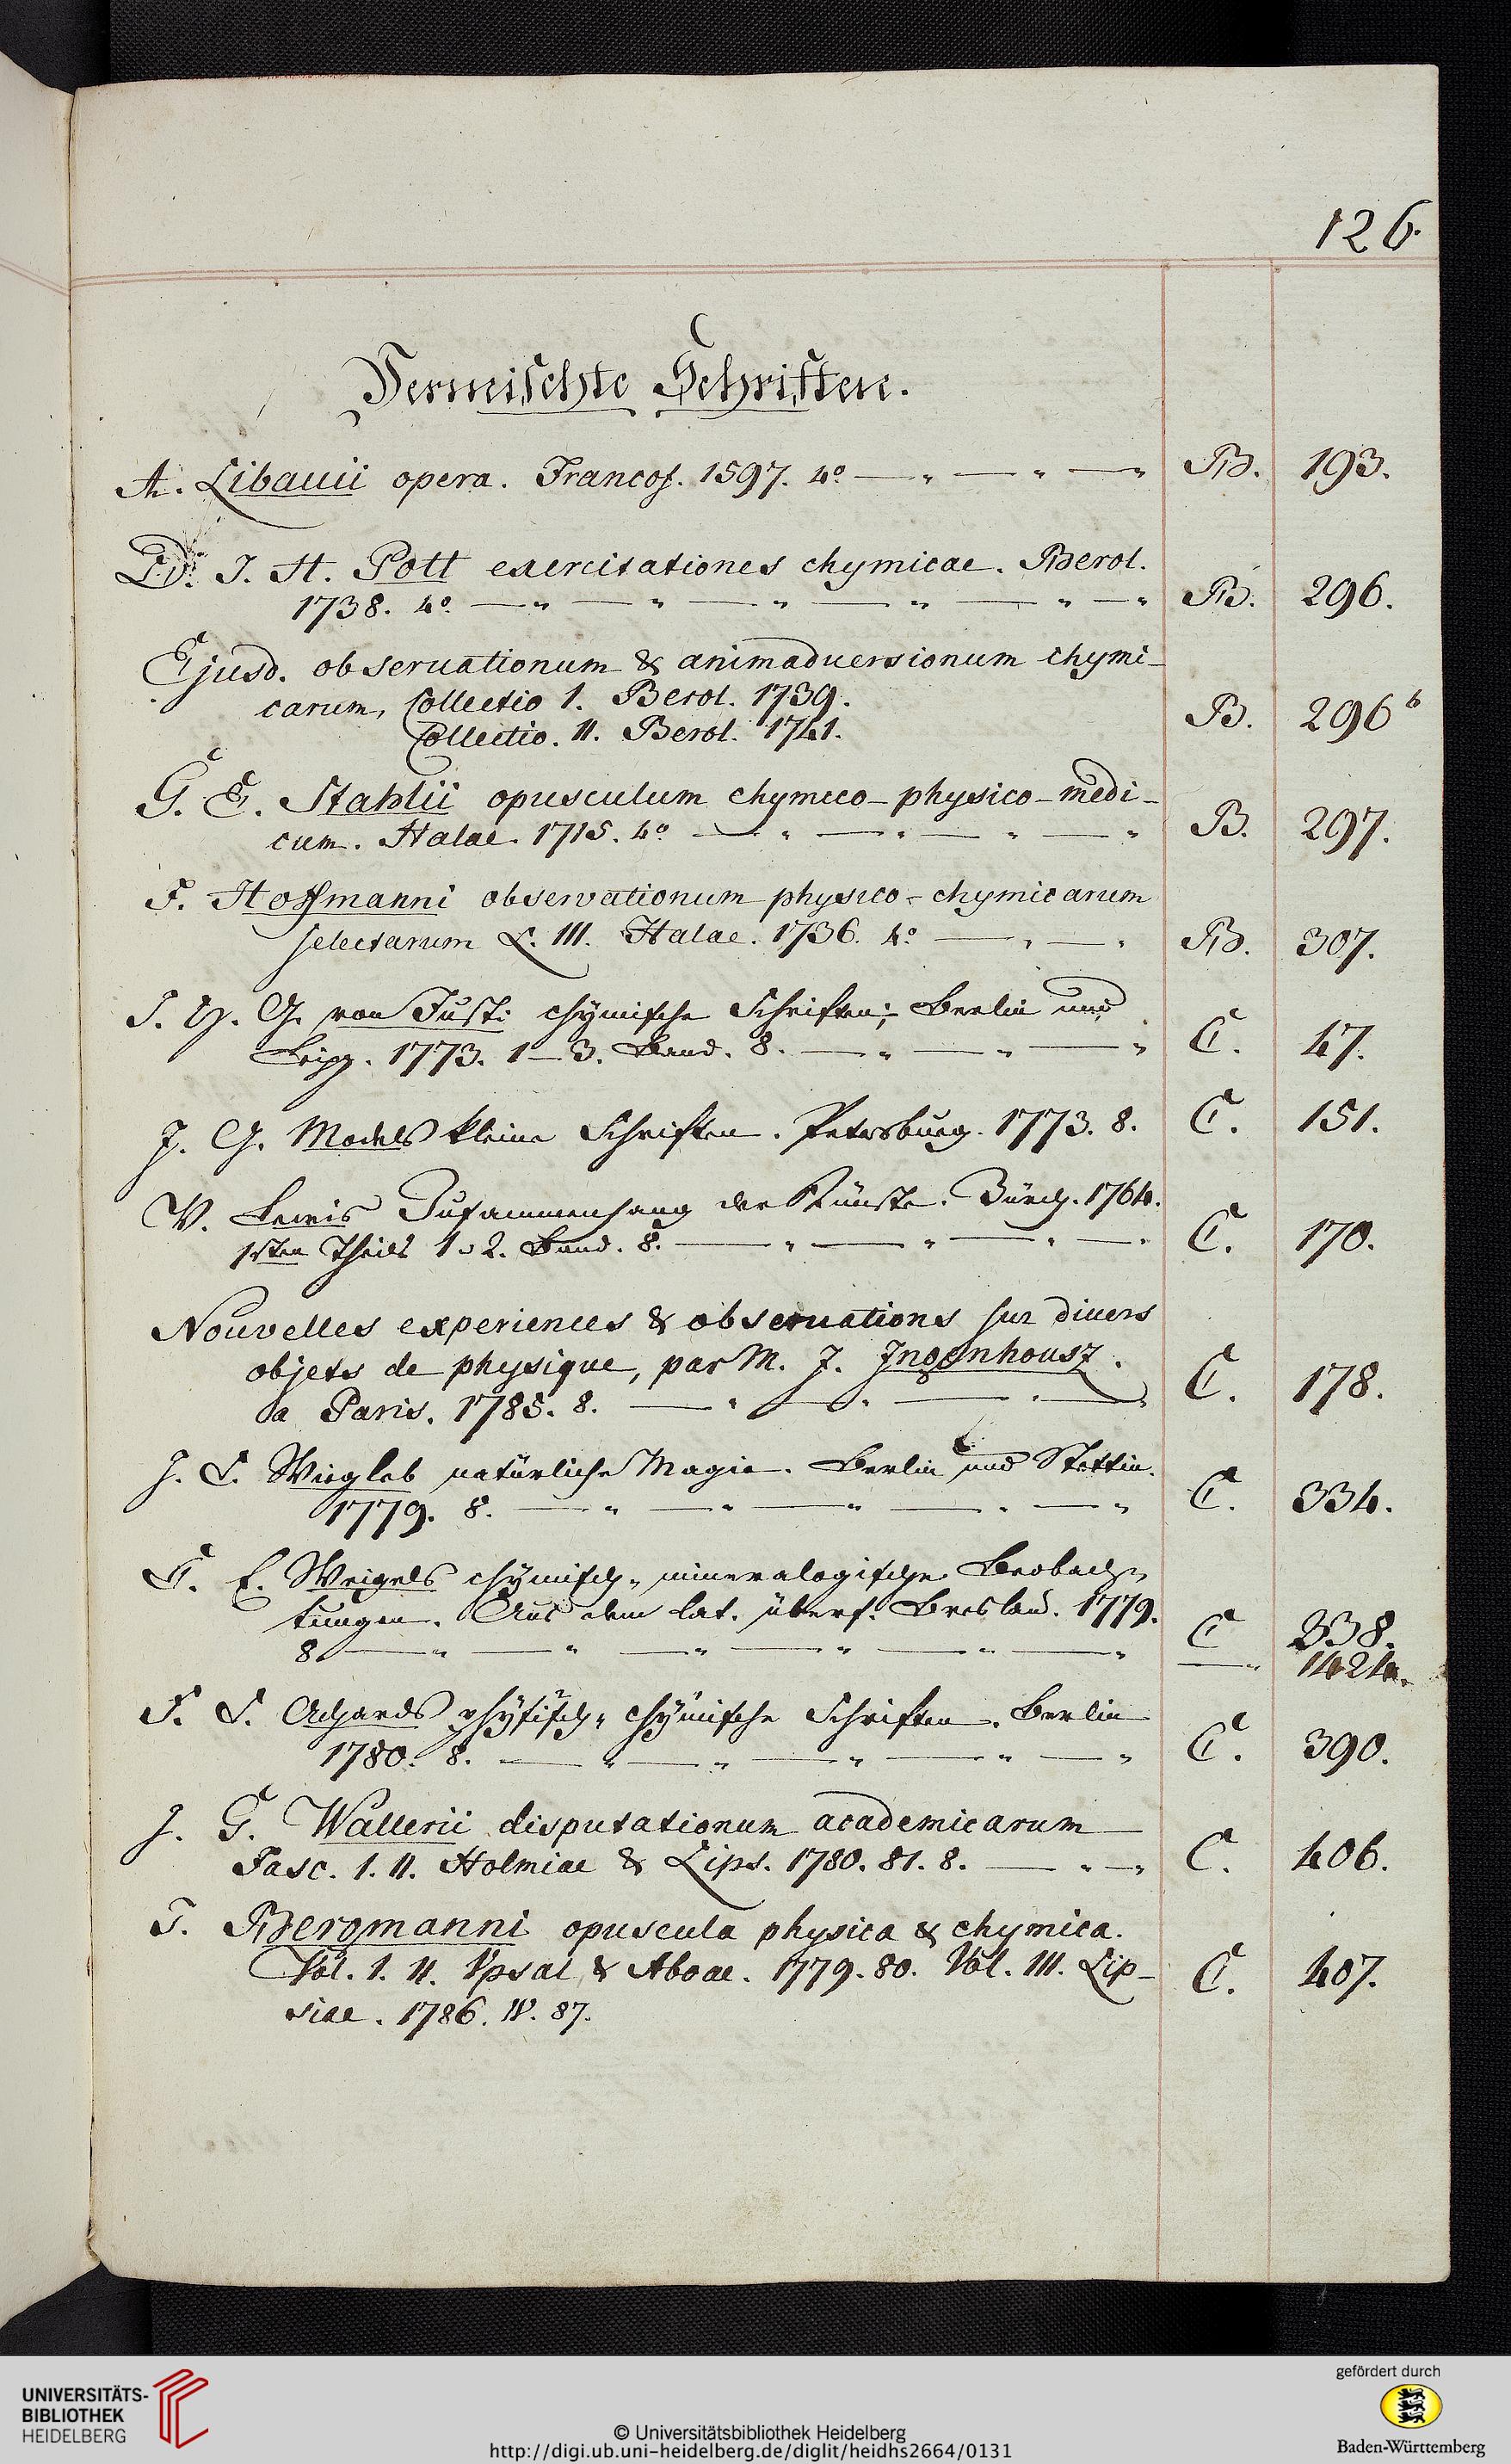 126.
Vermischte Schriften.
A. Libauii opera. Francof. 1597. 4º — " — " — " B. 193.
D. J. H. Pott exercitationes chymicae. Berol.
1738. 4º. — " — " — " — " — " — " B. 296.
Ejusd. obseruationum & animaduersionum chymi-
carum, Collectio 1. Berol. 1739.
Collectio. II. Berol. 1741. B. 296 b
G. E. Stahlii opusculum chymico-physico-medi-
cum. Halae. 1715. 4º — " — " — " — " B. 297.
F. Hoffmanni observationum physico-chymicarum
selectarum L. III. Halae. 1736. 4º — " — " B. 307.
J. H. G. von Justi chymische Schriften; Berlin und
Leipz. 1773. 1–3. Band. 8. — " — " — " C. 47.
J. G. Models kleine Schriften. Petersburg. 1773. 8. C. 151.
W. Lewis Zusammenhang der Künste. Zürch. 1764.
1sten Theils 1 u 2. Band. 8. — " — " — " — " C. 170.
Nouvelles experiences & obseruations sur diuers
objets de physique, par M. J. Ingenhousz.
a Paris. 1785. 8. — " — " — " — " C. 178.
J. C. Wiegleb natürliche Magie. Berlin und Stettin.
1779. 8. — " — " — " — " — " C. 334.
C. E. Weigels chymisch-mineralogische Beobach-
tungen. Aus dem lat. übers. Breslau. 1779.
8 — " — " — " — " — " — " C 338.
— " 1424.
F. C. Achards physisch-chymische Schriften. Berlin
1780. 8. — " — " — " — " — " C. 390.
J. G. Wallerii disputationum academicarum
Fasc. 1. II. Holmiae & Lips. 1780. 81. 8. — " — " C. 406.
T. Bergmanni opuscula physica & chymica.
Vol. 1. II. Vpsal & Aboae. 1779. 80. Vol. III. Lip-
siae. 1786. IV. 87. C. 407.
UNIVERSITÄTS-
BIBLIOTHEK
HEIDELBERG
© Universitätsbibliothek Heidelberg
http://digi.ub.uni-heidelberg.de/diglit/heidhs2664/0131
gefördert durch
Baden-Württemberg